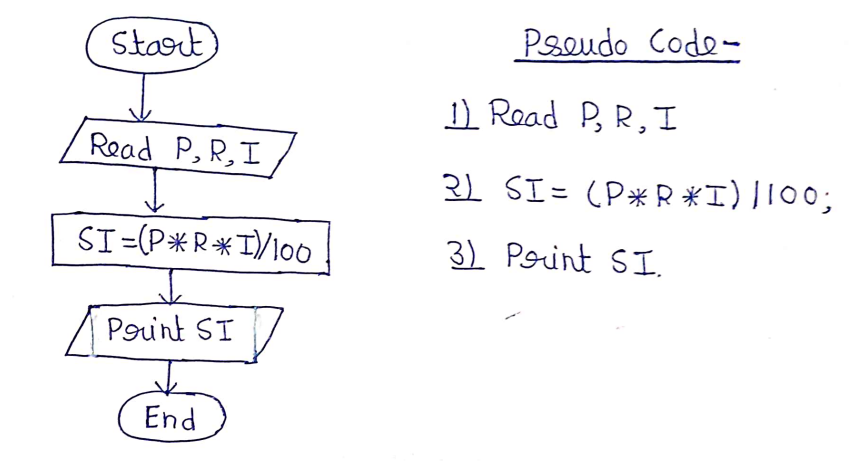 Start
Read P, R, I
SI=(P*R*I)/100
Print SI
End
Pseudo Code-
1) Read P, R, I
2) SI= (P*R*I)/100;
3) Print SI.